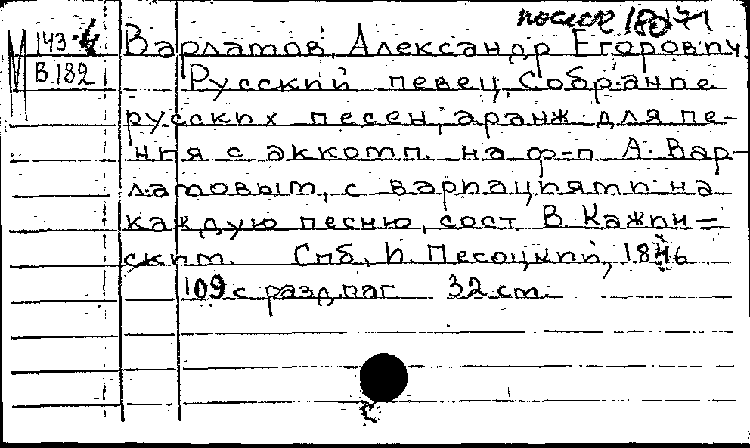 после 1871
М 143.4 Варламов, Александр Егорович
В.182 Русский певец. Собрание
русских песен, аранж. для пе-
ния с аккомп. на ф-п А. Вар-
ламовым, с вариациями на
каждую песню, сост. В. Кажин=
ским. Спб., И. Песоцкий, 1846
109 с разд. паг 32 см.